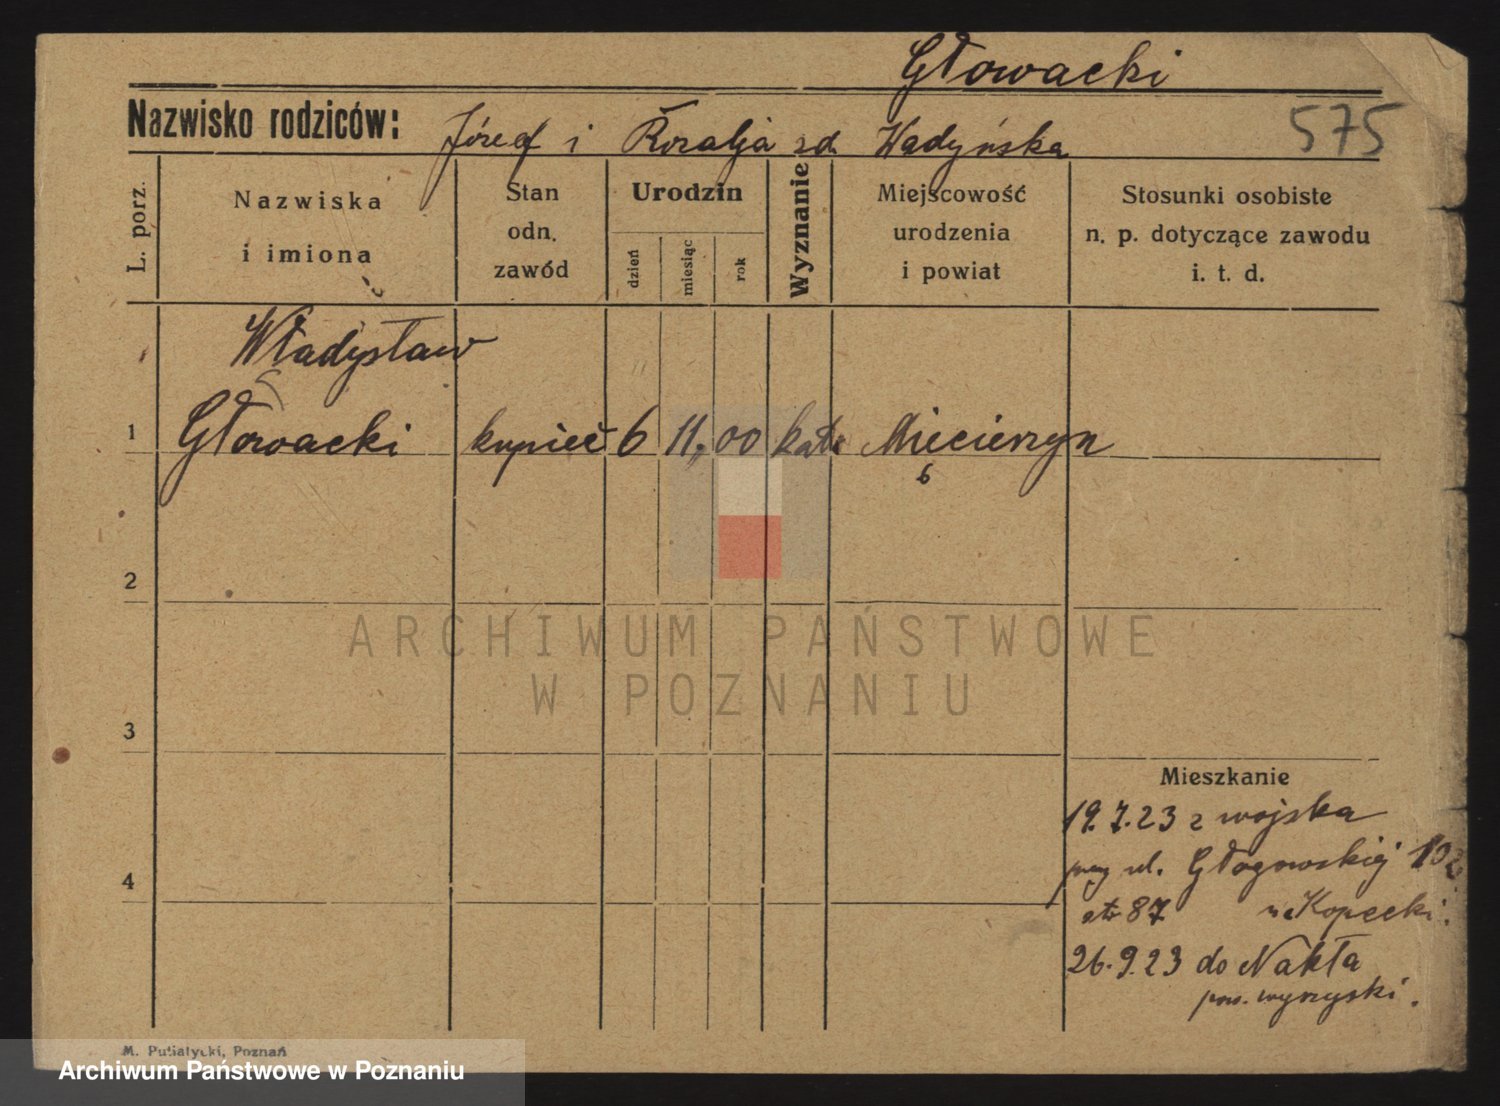 Głowacki
Nazwisko rodziców: Józef i Rozalja zd. Wadyńska
575
L. porz.
Nazwiska
i imiona
Stan
odn.
zawód
Urodzin
dzień
miesiąc
rok
Wyznanie
Miejscowość
urodzenia
i powiat
Stosunki osobiste
n. p. dotyczące zawodu
i. t. d.
Władysław
1 Głowacki kupiec 6 11. 00 kat. Mięcierzyn
6
2
ARCHIWUM PAŃSTWOWE
W POZNANIU
3
Mieszkanie
19.7.23 z wojska
4
przy ul. Głogowskiej 102
str 87 Kopecki.
26.9.23 do Nakła
pow. wyrzyski.
M. Putiatycki, Poznań
Archiwum Państwowe w Poznaniu